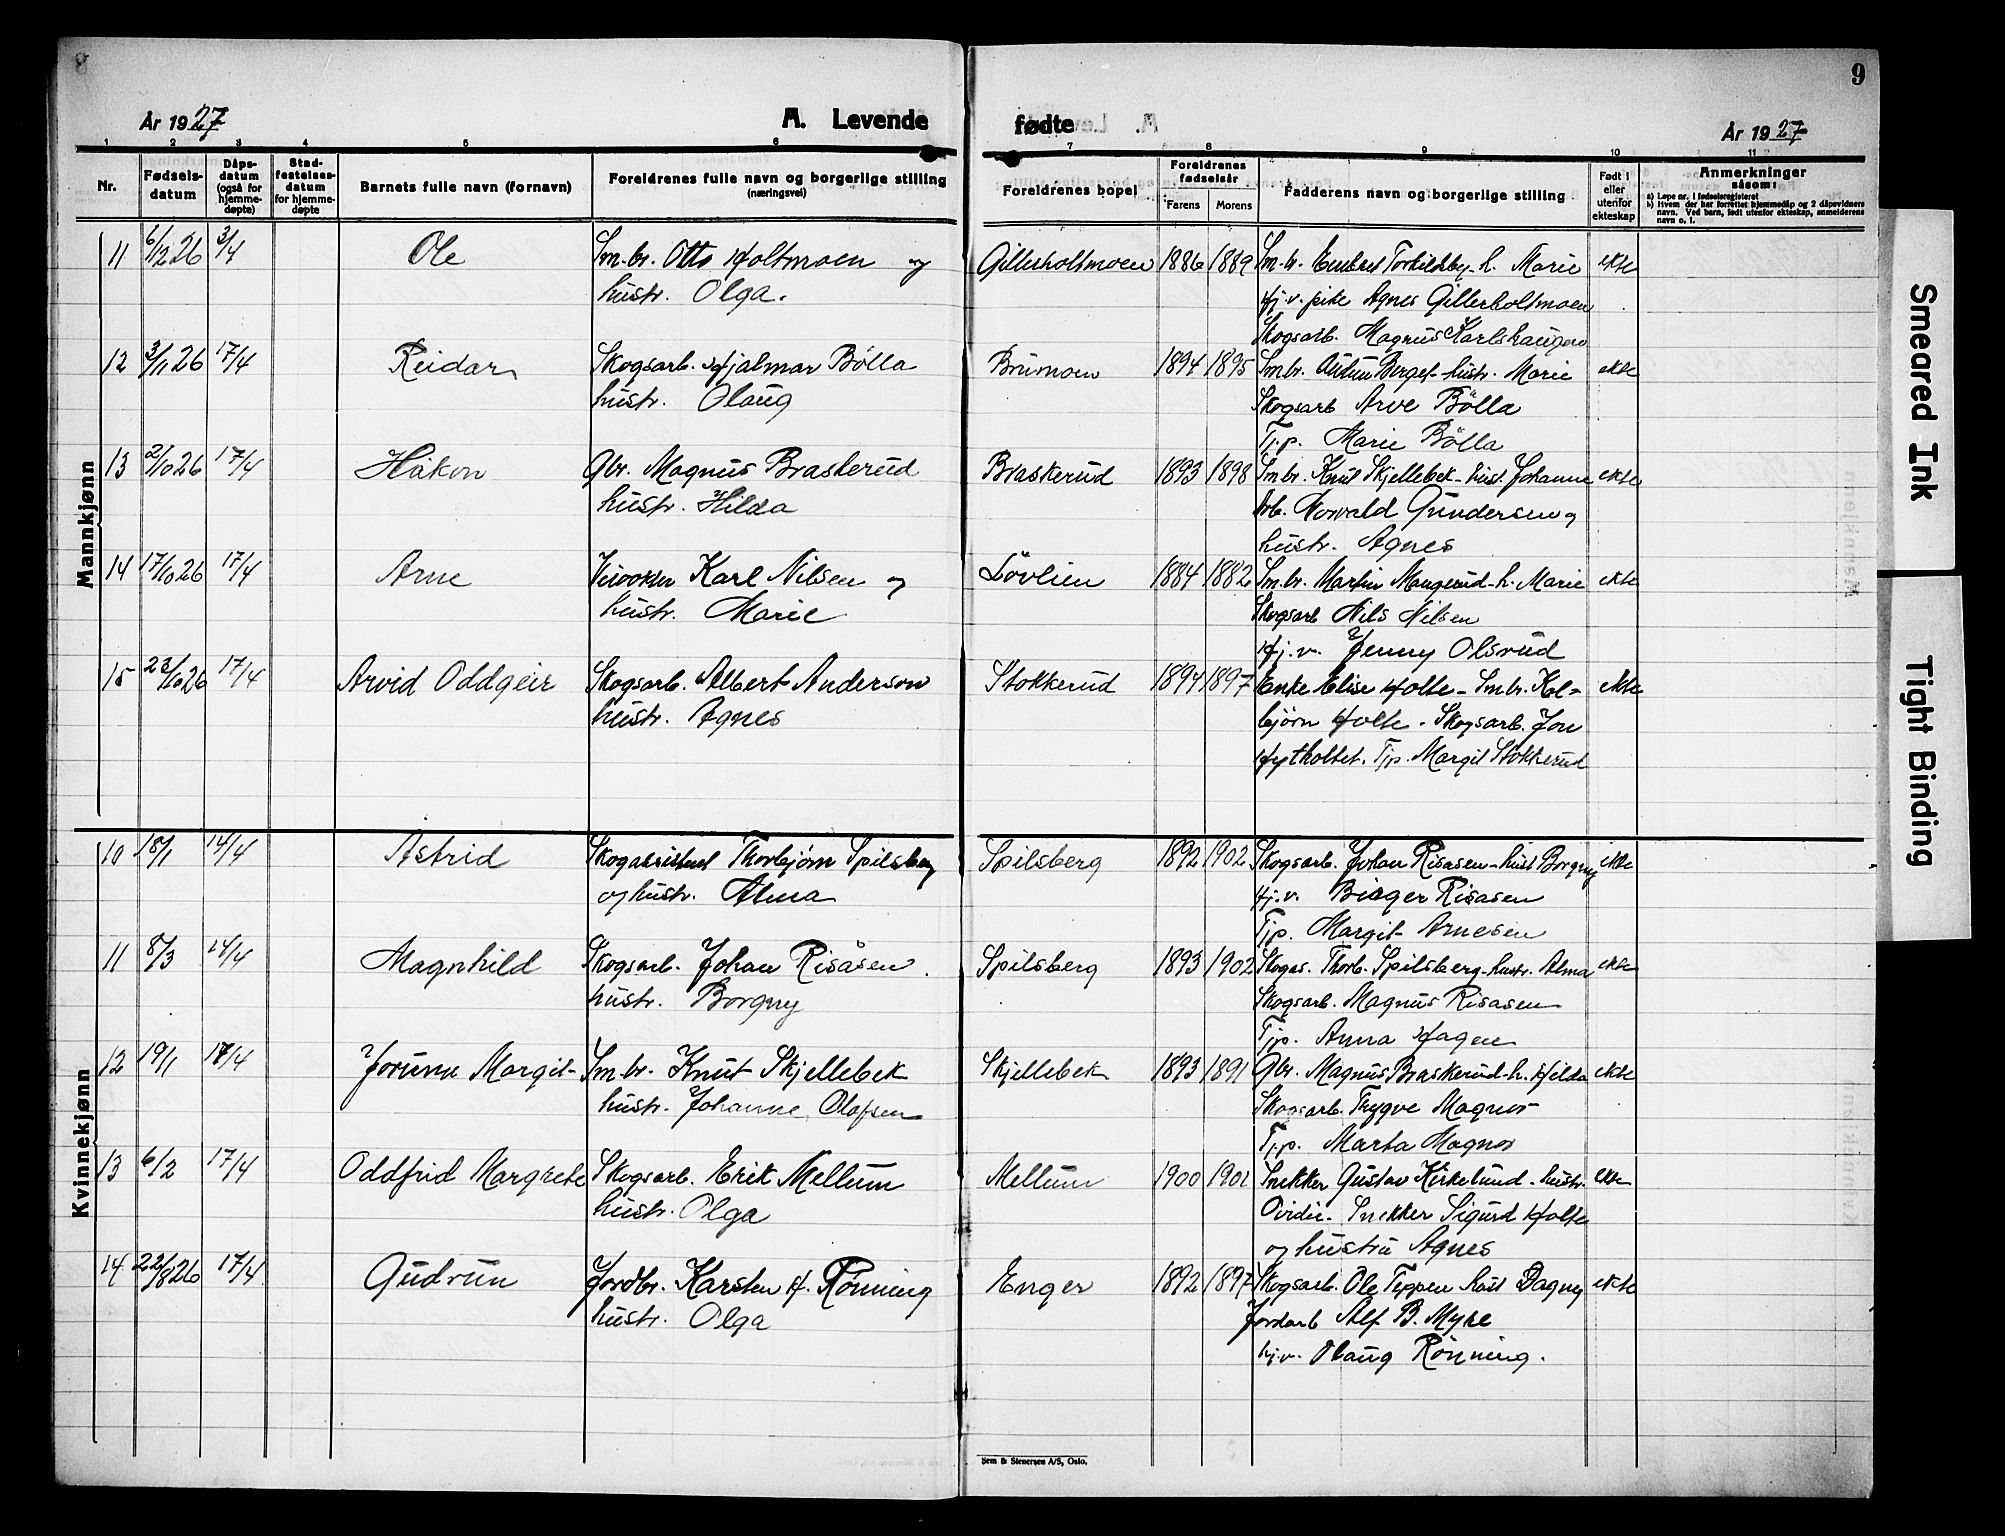 8
År 1927
A. Levende
1 2 3 4 5 6
Nr.
Fødsels-
datum
Dåps-
datum
(også for
hjemme-
døpte)
Stad-
festelses-
datum
for hjemme-
døpte
Barnets fulle navn (fornavn)
Foreldrenes fulle navn og borgerlige stilling
(næringsvei)
Mannkjønn
11 6/12 26 3/4 Ole Sm.br. Otto Holtmoen og
hustr. Olga.
12 3/11 26 17/4 Reidar Skogsarb. Hjalmar Bölla
hustr. Olaug
13 2/10 26 17/4 Håkon Gbr. Magnus Braskerud
hustr. Hilda
14 17/10 26 17/4 Arne Karl Nilsen og
hustr. Marie
15 23/10 26 17/4 Arvid Oddgeir Skogsarb. Albert Anderson
hustr. Agnes
Kvinnekjønn
10 18/1 14/4 Astrid Thorbjörn Spilsberg
og hustr. Alma
11 8/3 14/4 Magnhild Skogsarb. Johan Risåsen
hustr. Borgny
12 19/1 17/4 Jorunn Margit Sm.br. Knut Skjellebek
hustr. Johanne Olafsen
13 6/2 17/4 Oddfrid Margrete Skogsarb. Erik Mellum
hustr. Olga
14 22/8 26 17/4 Gudrun Jordbr. Karsten H. Rönning
hustr. Olga
9
fødte
År 1927
7 8 9 10 11
Foreldrenes bopel
Foreldrenes
fødselsår
Farens Morens
Fadderens navn og borgerlige stilling
Født i
eller
utenfor
ekteskap
Anmerkninger
såsom:
a) Løpe nr. i fødselsregisteret
b) Hvem der har forrettet hjemmedåp og 2 dåpsvidners
navn. Ved barn, født utenfor ekteskap, anmelderens
navn o. l.
Gillerholtmoen 1886 1889 Sm.br. Embret Torkildsby - h. Marie ekte
Hj.v. pike Agnes Gillerholtmoen
Skogsarb. Magnus Karlshaugen
Brumoen 1894 1895 Smbr. Audun Berget - hustr. Marie ekte
Skogsarb Arve Bölla
Tj.p. Marie Bölla
Braskerud 1893 1898 Sm.br. Knut Skjellebek - hust. Johanne ekte
Arb. Norvald Gundersen og
hustr. Agnes
Lövlien 1884 1882 Sm.br. Martin Maugerud - h. Marie ekte
Skogsarb Nils Nilsen
Hj.v. Jenny Olsrud
Stokkerud 1894 1897 Enke Elise Holte - Smbr. Kol-
ekte
björn Holte. Skogsarb. Jon
Hytholtet. Tjp. Margit Stokkerud
Spilsberg 1892 1902 Skogsarb. Johan Risasen - hust Borgny ekte
Hj.v. Birger Risasen
Tjp. Margit Arnesen
Spilsberg 1893 1902 Skogas. Thorb. Spilsberg - hustr. Alma ekte
Skogsarb. Magnus Risasen
Tjp. Anna Hagen
Skjellebek 1893 1891 Gbr. Magnus Braskerud - h. Hilda ekte
Skogsarb. Trygve Magnor
Tj.p. Marta Magnor
Mellum 1900 1901 Snekker Gustav Kirkelund - hustr. ekte
Ovidie. Snekker Sigurd Holte
og hustru Agnes
Enger 1892 1897 Skogsarb. Ole Teppen hust Dagny ekte
Jordarb Alf B. Myre
hj.v. Olaug Rönning.
Sem & Stenersen A/S, Oslo.
Smeared Ink
Tight Binding